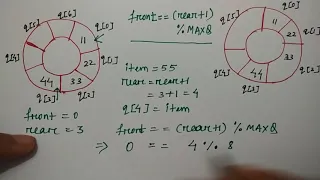 front == (rear+1)
% MAXQ
q[5]
q[4]
11
q[0]
22
q[1]
33
q[2]
44
q[3]
item = 55
rear = rear+1
= 3+1 = 4
q[4] = item
front = 0
rear = 3
front == (rear+1) % MAXQ
⇒ 0 == 4 % 8
q[5]
11
q[0]
22
q[1]
33
q[2]
44